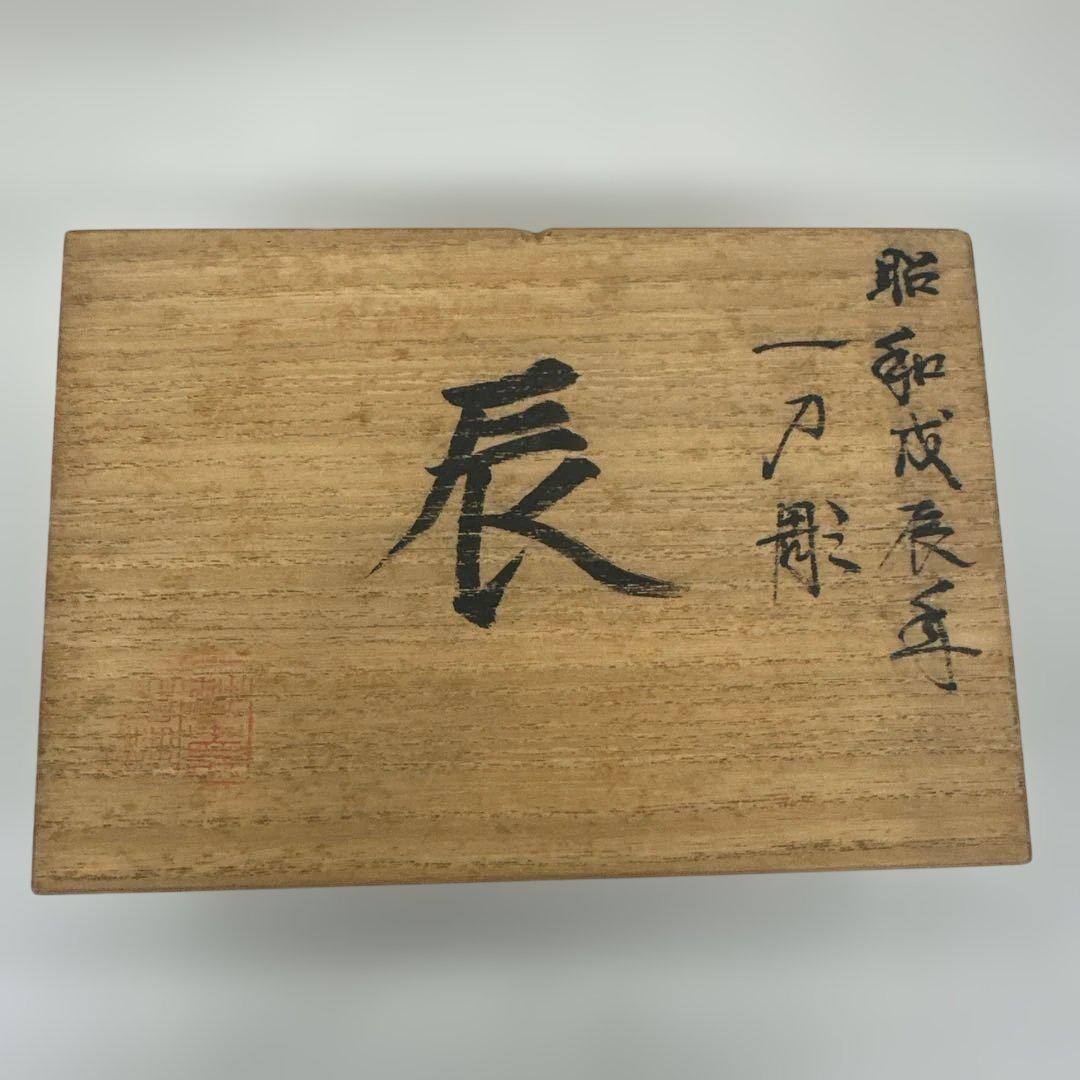 昭和戊辰年
一刀彫
辰